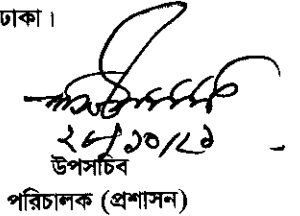 ঢাকা।
২৮/১০/২১
উপসচিব
পরিচালক (প্রশাসন)